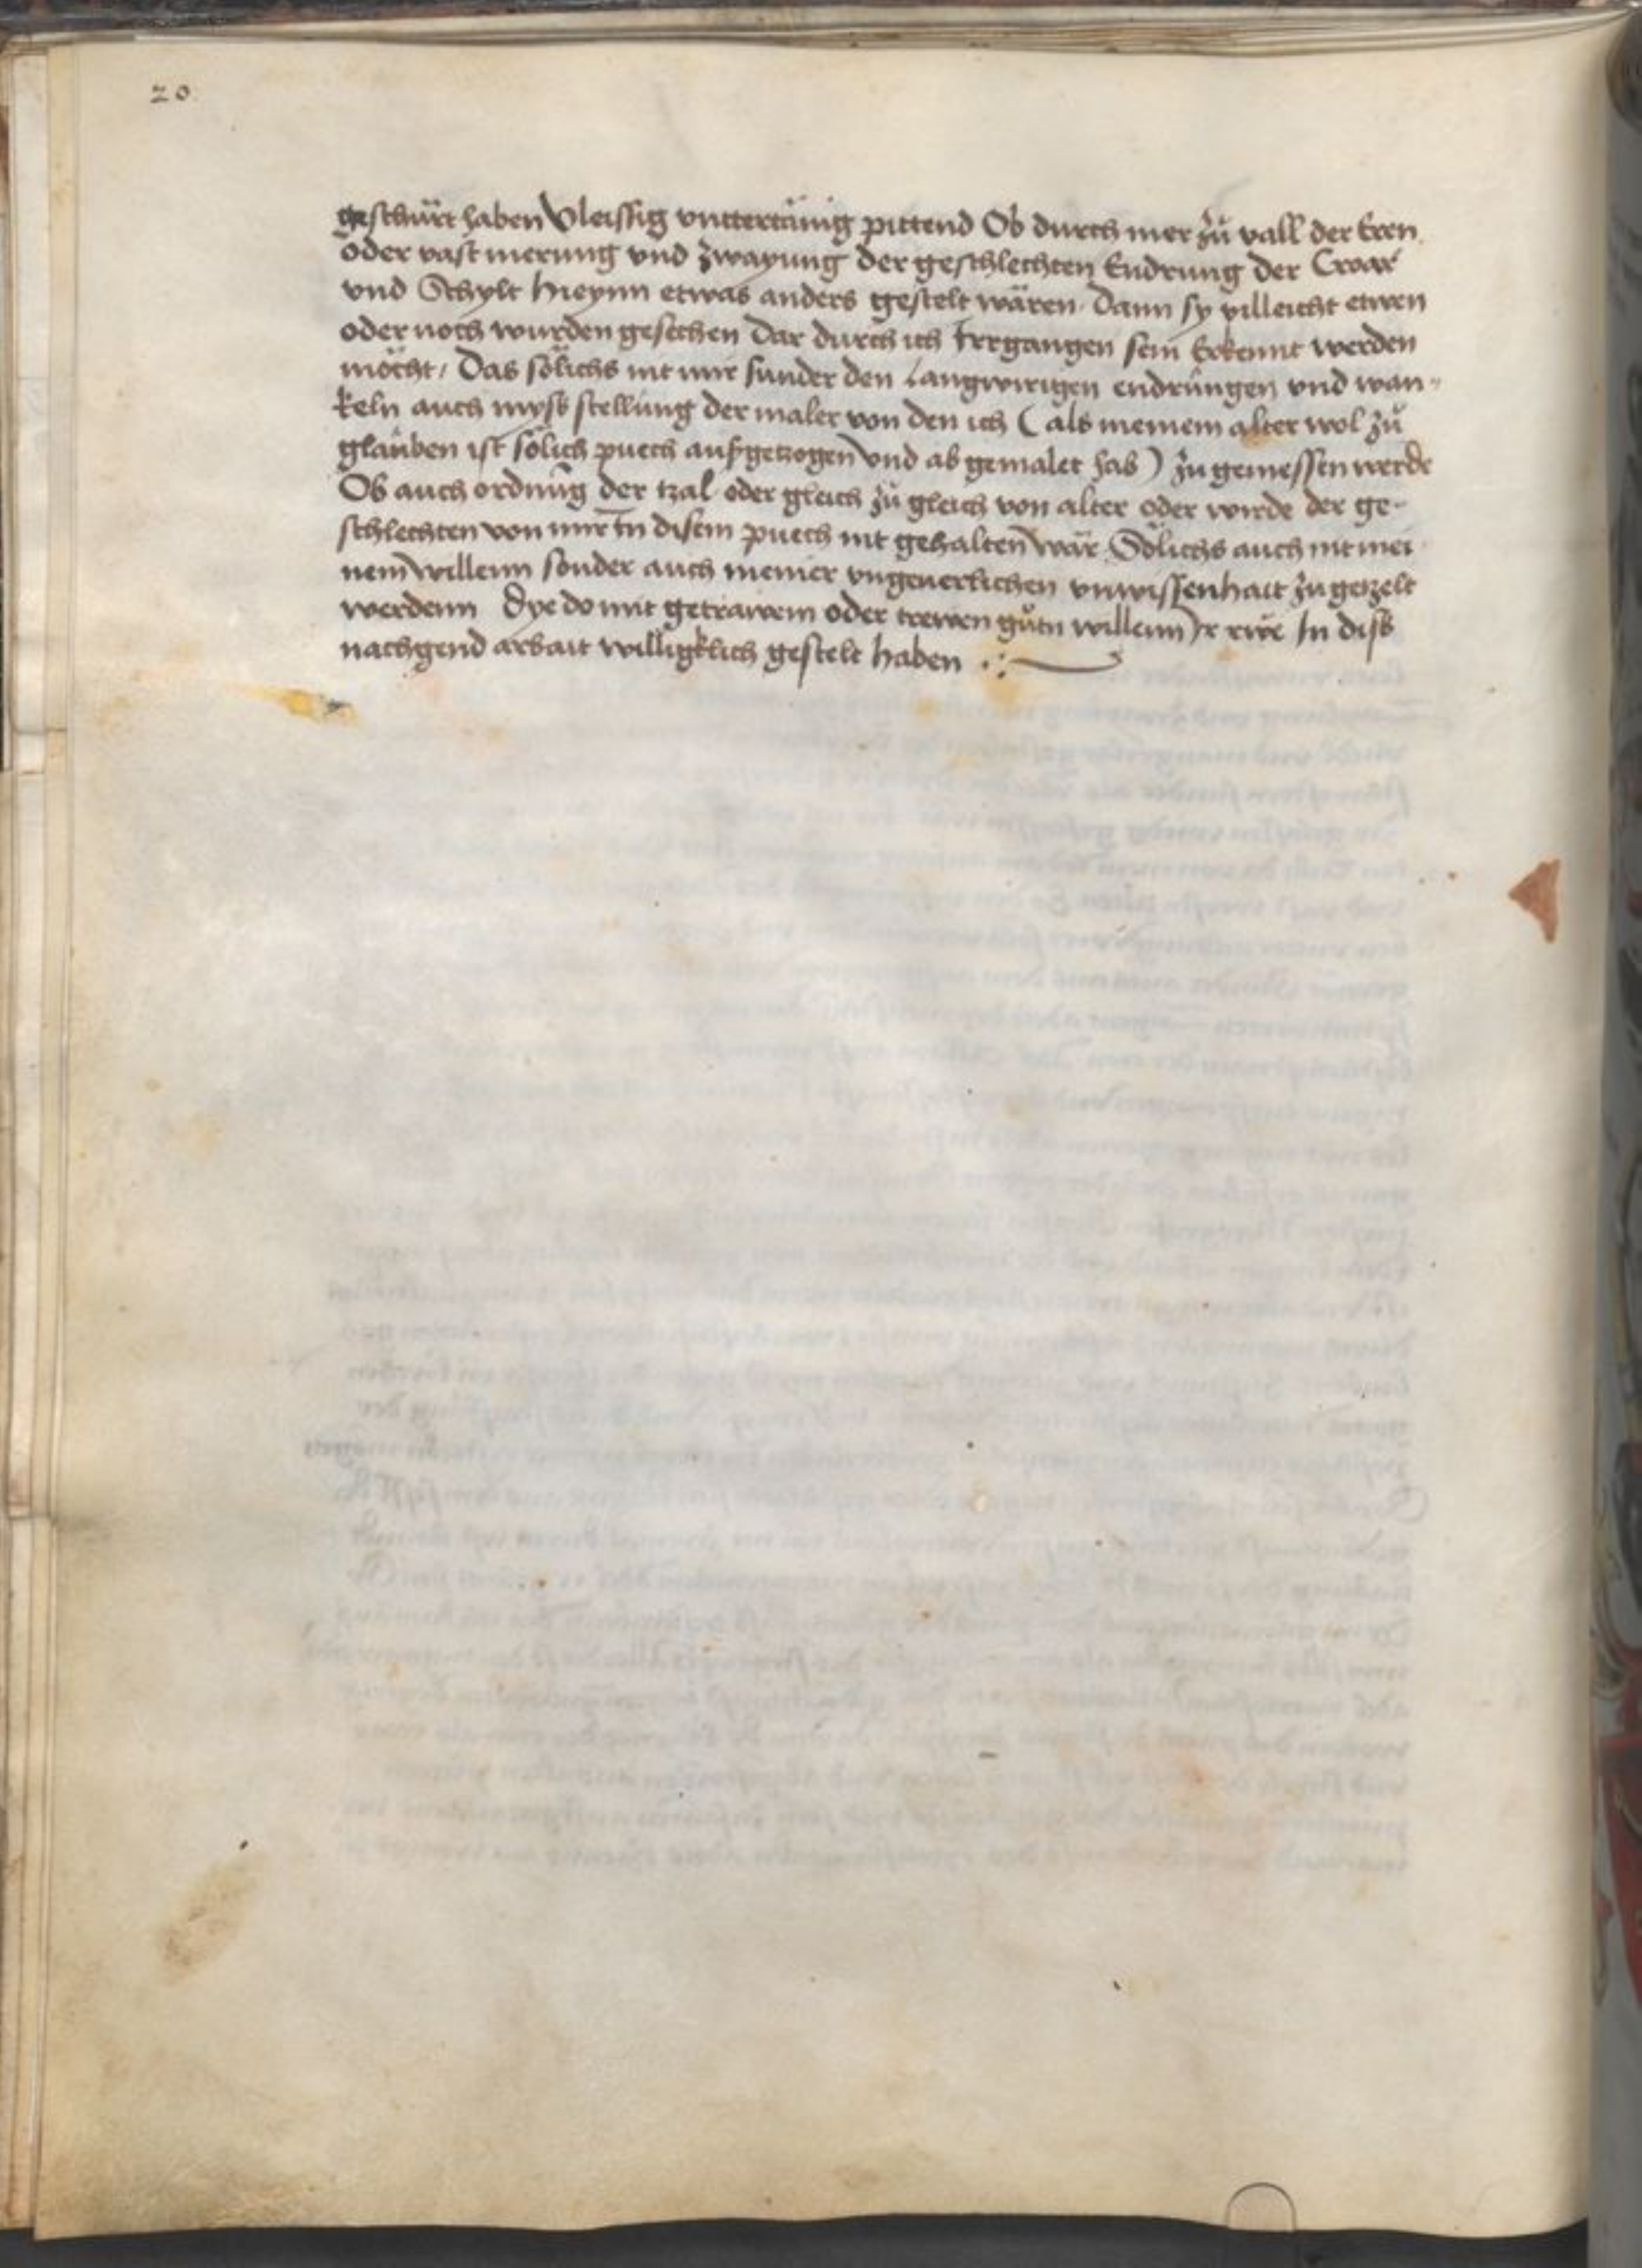 20
geschürt haben Vleissig vnttertänig pittend Ob durch mer zů vall der Eren
oder vast merung vnd zwayung der geschlechten Endrung der Croar
vnd Schylt hieynn etwas anders gestelt wären. Dann sy villeicht etwen
oder noch wurden gesechen Dar durch ich Irrgangen sein Erkennt werden
möcht / Das sölichs nit mir sunder den Langwirigen endrungen vnd wan-
keln auch mysß stellung der maler von den ich (als meinem alter wol zů
glauben ist sölich puech aufgetzogen vnd ab gemalet hab) zu gemessen werde
Ob auch ordnūg der tzal oder gleich zů gleich von alter oder wirde der ge-
schlechten von mir In disem puech nit gehalten wär Sölichs auch nit mei
nem willenn sonder auch meiner vngeuerlichen vnwissenhait zu getzelt
werdenn Dye do mit getrawem oder trewen gůtn willenn In disß
nachgend arbait willigklich gestelt haben .: